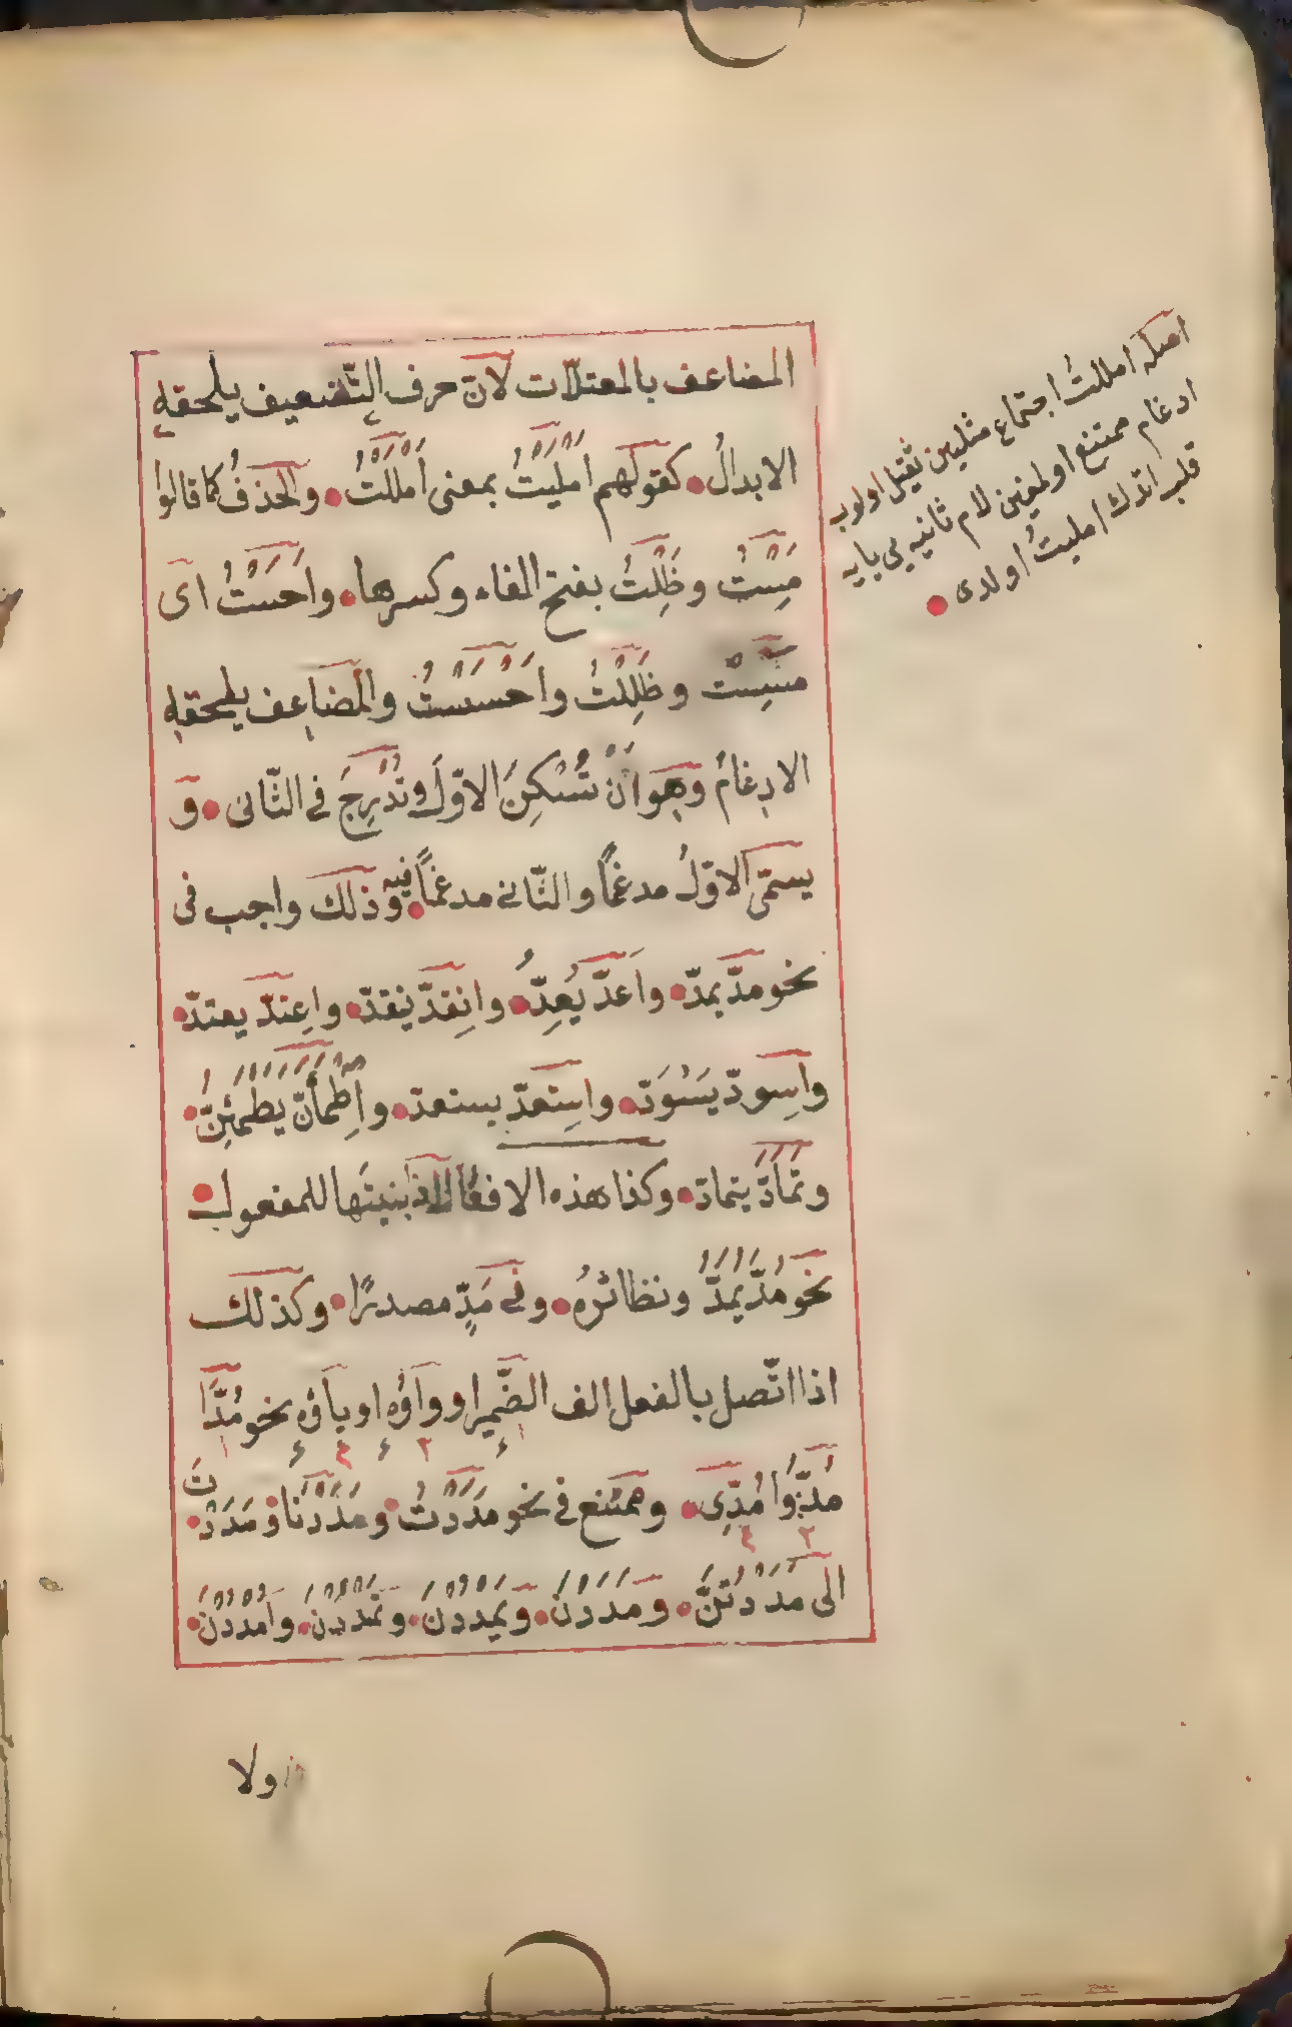 المضاعف بالمعتلّات لانّ حرف التّضعيف يلحقه
الابدالُ كقولهم اَمْلَيْتُ بمعنى اَمْلَلْتُ والحذفُ كما قالوا
مِسْتُ وظِلْتُ بفتح الفاء وكسرها واَحَسْتُ اى
مسِسْتُ وظَلِلْتُ واَحْسَسْتُ والمضاعف يلحقه
الادغامُ وهو اَنْ تُسْكِنَ الاوّلَ وتُدْرِجَ فى الثّانى و
يسمّى الاوّلُ مدغمًا والثّانى مدغمًا فيه وذلك واجب فى
نحو مدّ يمدّ واَعَدّ يُعِدُّ وانِقدّ ينقدّ واعِتدّ يعتدّ
واسِودّ يَسْوَدّ واسِتعدّ يستعدّ واِطْمأَنّ يطمئِنّ
وتمَادَّ يتمادّ وكذا هذه الافعال اذا بنيتَها للمفعول
نحو مُدَّ يُمَدُّ ونظائرُه وفى مَدٍّ مصدرًا وكذلك
اذا اتّصل بالفعل الف الضّمير او واوُه او ياؤه نحو مُدَّا
مُدُّوا مُدِّى وممتنع فى نحو مَدَدْتُ ومَدَدْنَا ومَدَدْتَ
الى مَدَدْتُنَّ ومَدَدْنَ ويَمْدُدْنَ وتَمْدُدْنَ واُمْدُدْنَ
ولا
اصله امللتُ اجتماع مثلين ثقيل اولوب
ادغام ممتنع اولمغين لام ثانيه يى يايه
قلب اتدك امليتُ اولدى